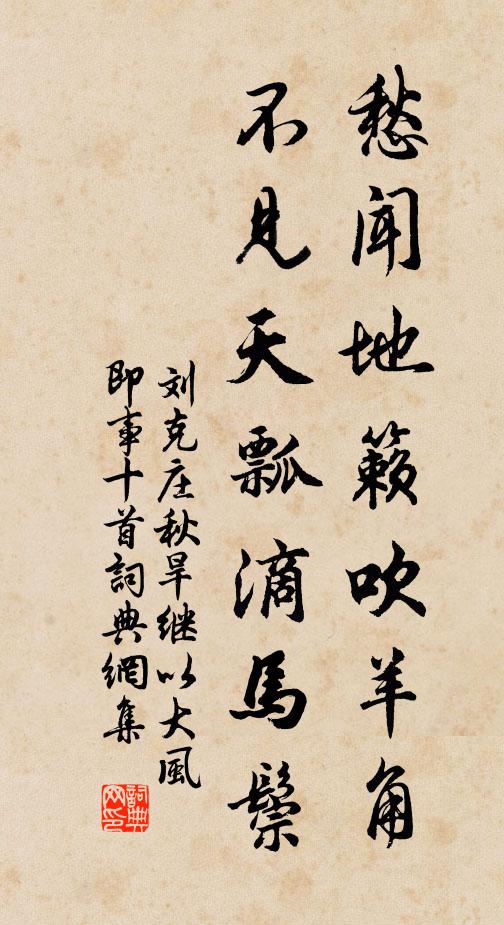 愁聞地籟吹羊角
不見天瓢滴馬鬃
刘克庄秋旱继以大風
即事十首詞典網集
詞典网印